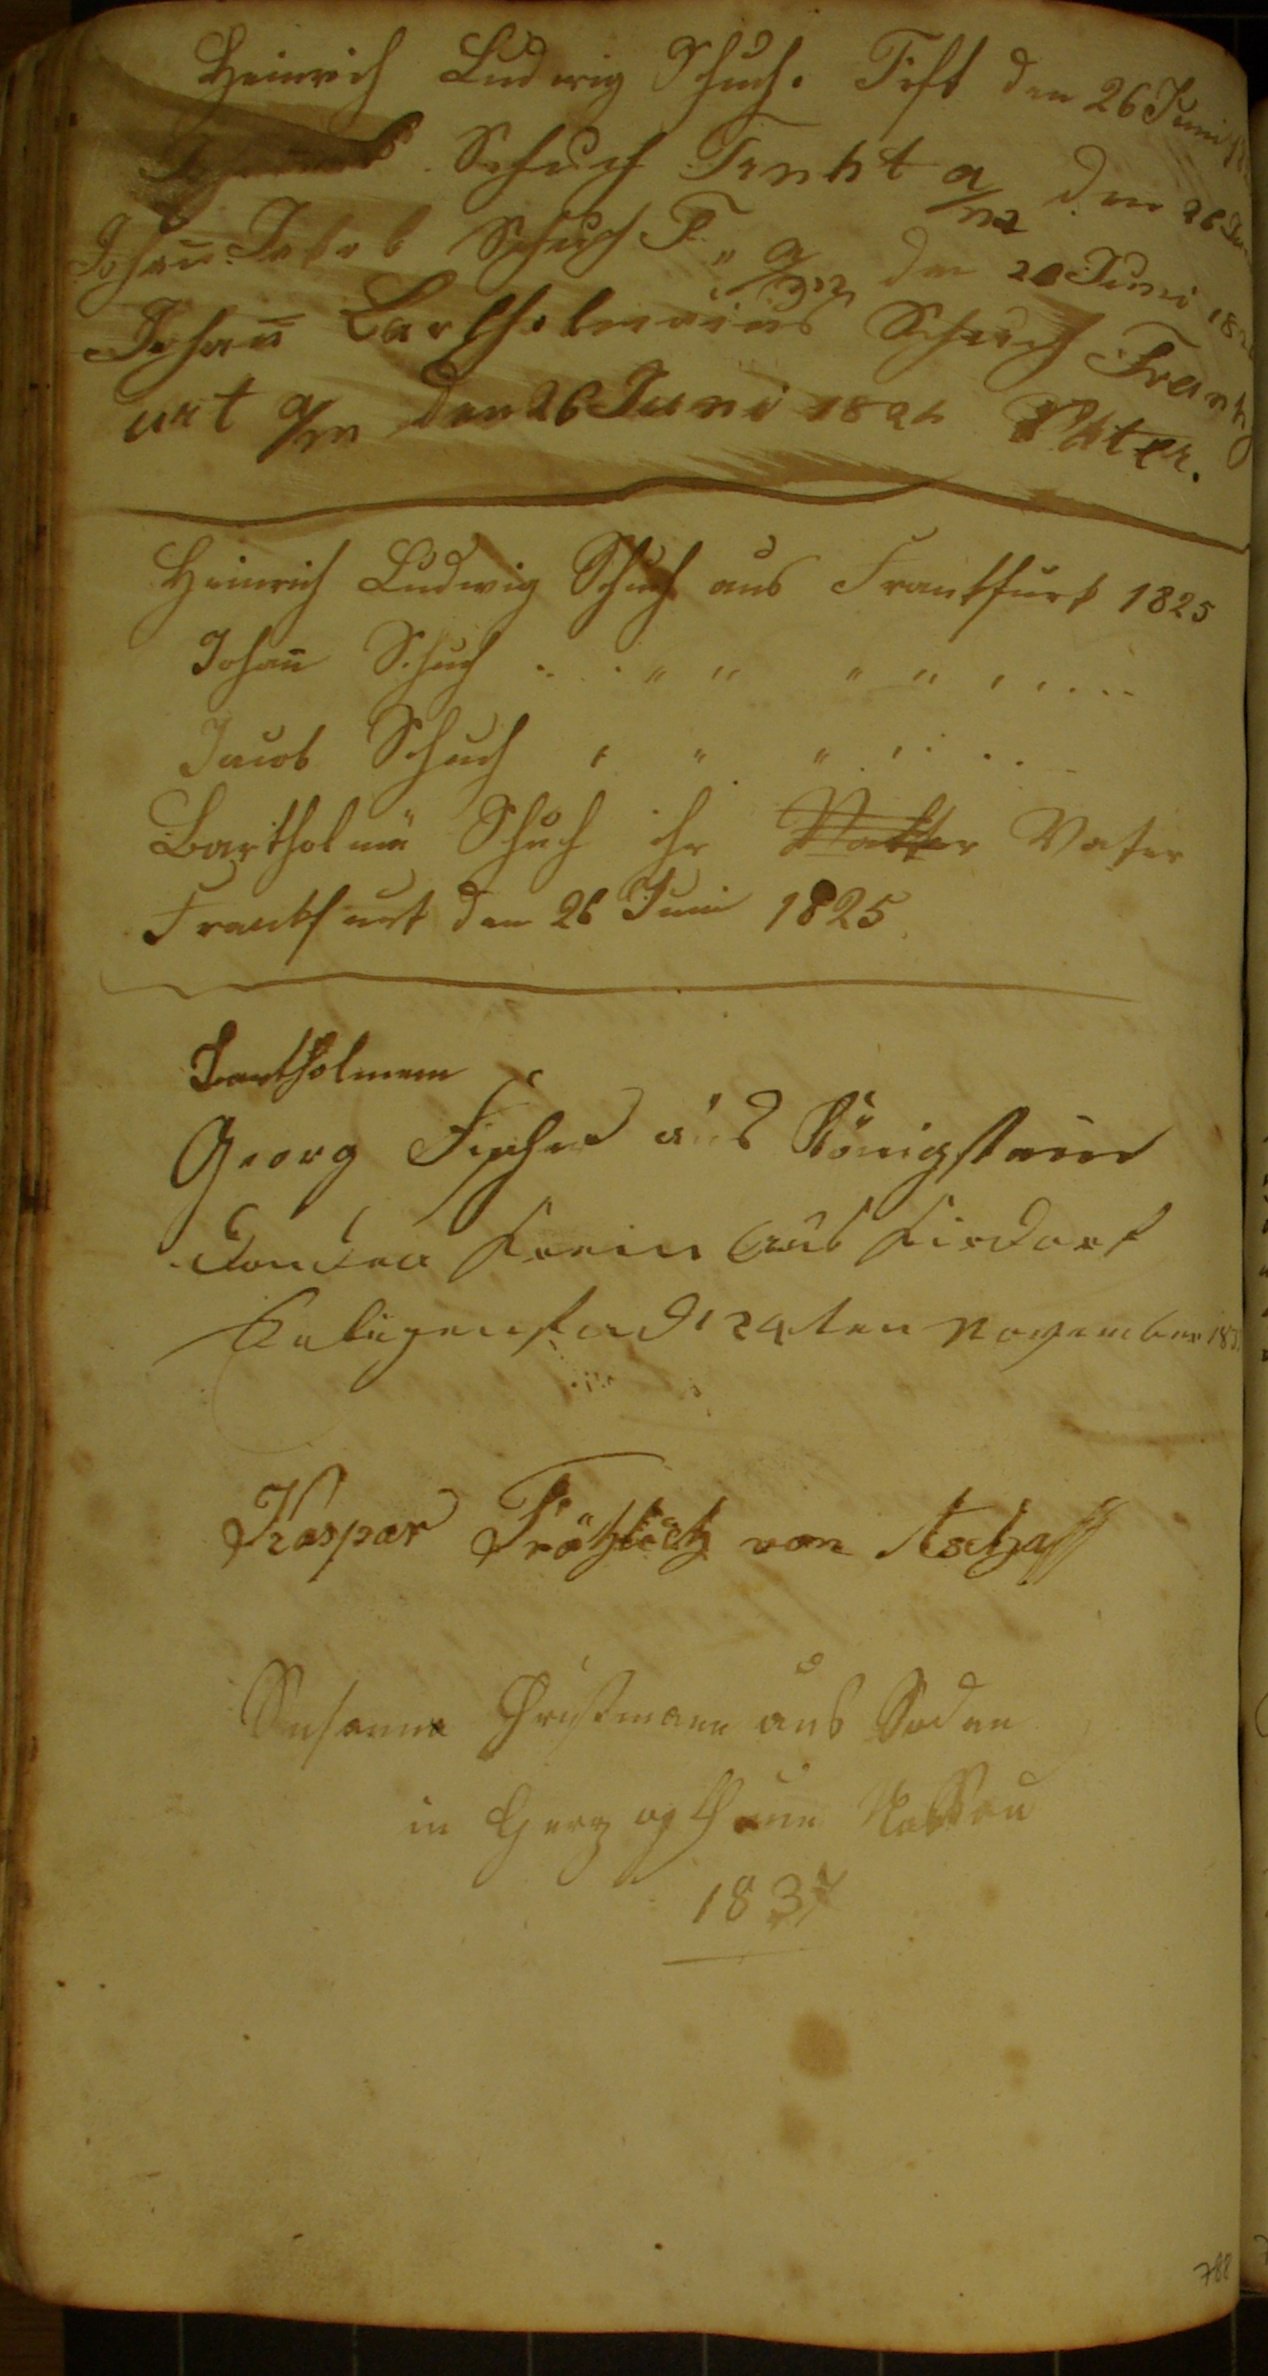 Heinrich Ludwig Schuch. Frft den 26 Juni
Schuch Frnkt a/m den 26 Jun
Johañ Jakob Schuch F. „ a/m den 26 Juni 182
Johañ Bartholmeius Schuch Frankf
urt a/m den 26 Juni 182 Vater.
Heinrich Ludwig Schuch aus Frankfurt 1825
Johañ Schuch „ „ „ „
Jacob Schuch „ „ „
Bartholmä Schuch ihr Vatter Vater
Frankfurt den 26 Juni 1825
Bartholmem
Georg Fischer aus Königstein
aus Kirdorf
24ten November 183
Kaspar von Aschaff
Susanna Christmann aus Soden
in Herzogthum Nassau
1837
788